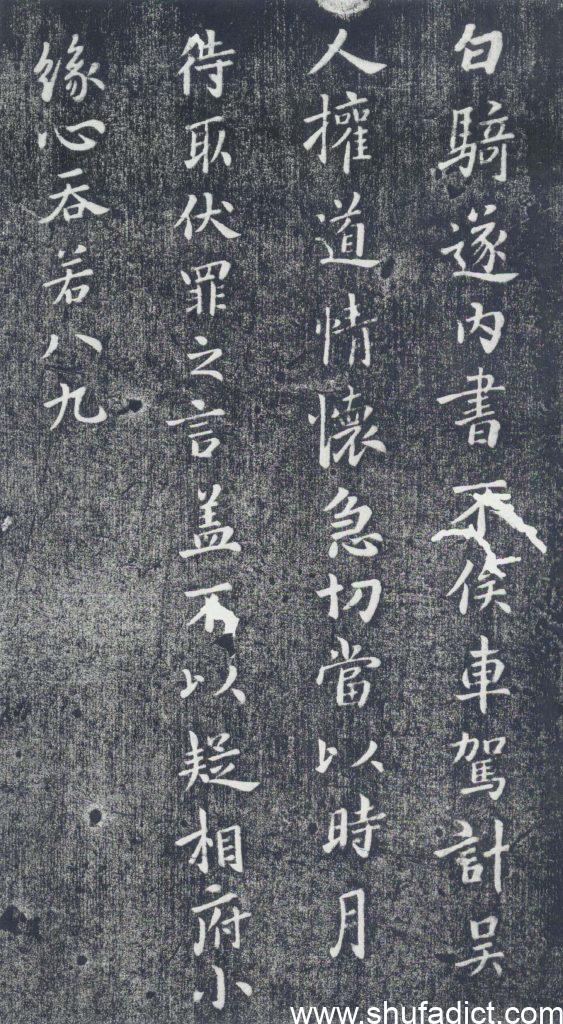 白騎遂內書不俟車駕計吳
人權道情懷急切當以時月
待取伏罪之言盖不以疑相府小
緣心吞若八九
www.shufadict.com